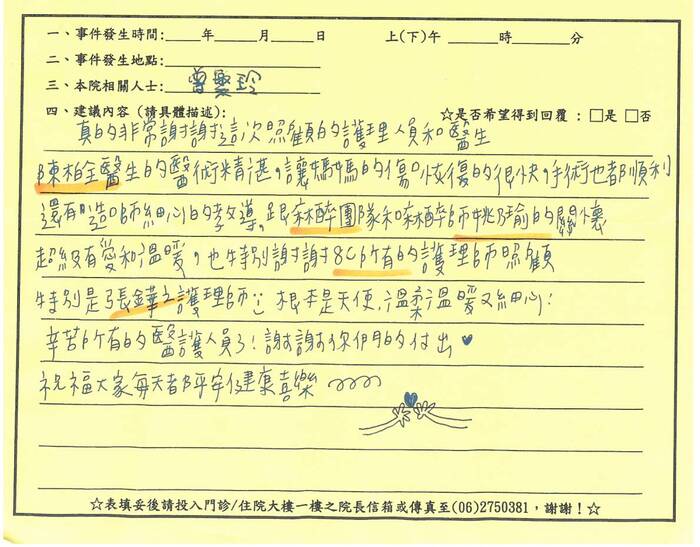 一、事件發生時間:____年____月____日 上(下)午____時____分
二、事件發生地點:
三、本院相關人士:
四、建議內容(請具體描述): ☆是否希望得到回覆:□是 □否
真的非常謝謝這次照顧的護理人員和醫生
陳柏全醫生的醫術精湛,讓媽媽的傷口恢復的很快,手術也都順利
還有造口師細心的教導。跟麻醉團隊和麻醉師姚瑜的關懷
超級有愛和溫暖,也特別謝謝8C所有的護理師照顧
特別是張鏵之護理師 根本是天使,溫柔溫暖又細心!
辛苦所有的醫護人員了!謝謝你們的付出
祝福大家每天都平安健康喜樂
☆表填妥後請投入門診/住院大樓一樓之院長信箱或傳真至(06)2750381,謝謝!☆